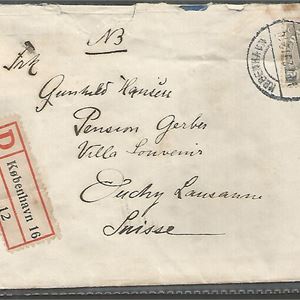 NB
Frk
Gunhild Hansen
Pension Gerber
Villa Souvenir
Ouchy Lausanne
Suisse
D
København 16
12
KØBENHAVN